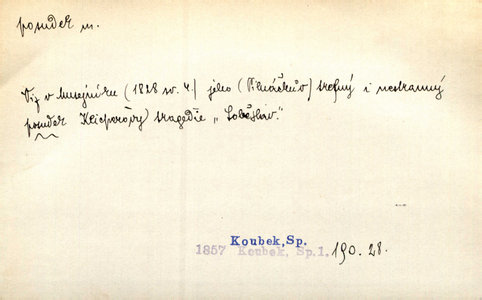 posudek m.
Viz v Musejníku (1828 sv. 4.) jeho (Pilnáčkův) trefný i nestranný
posudek Klicperovy tragedie „Soběslav.“
Koubek, Sp.
1857 Koubek, Sp.1. 190. 28.